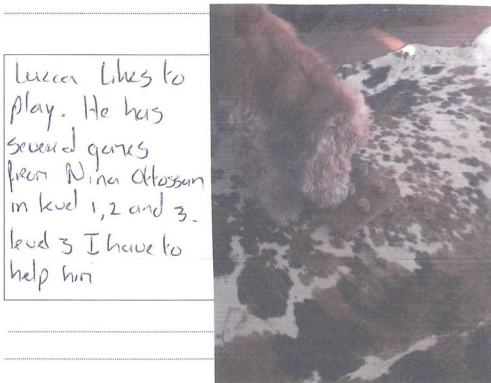 Lucca Likes to
play. He has
several games
from Nina Ottosson
in level 1, 2 and 3.
level 3 I have to
help him